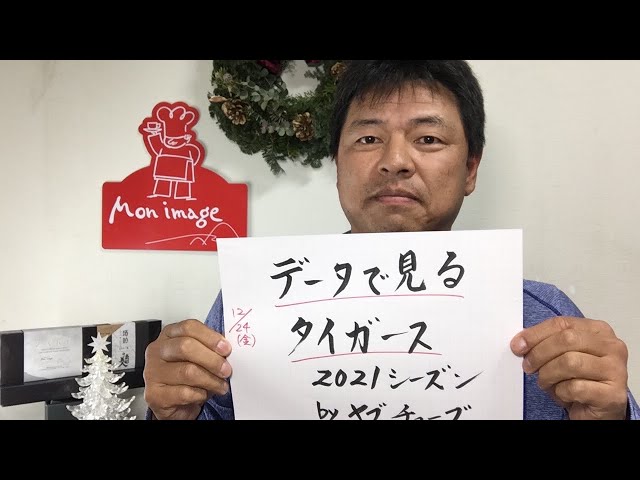 Mon image
データで見る
12/24
(金)
タイガース
2021シーズン
by ヤブチューブ